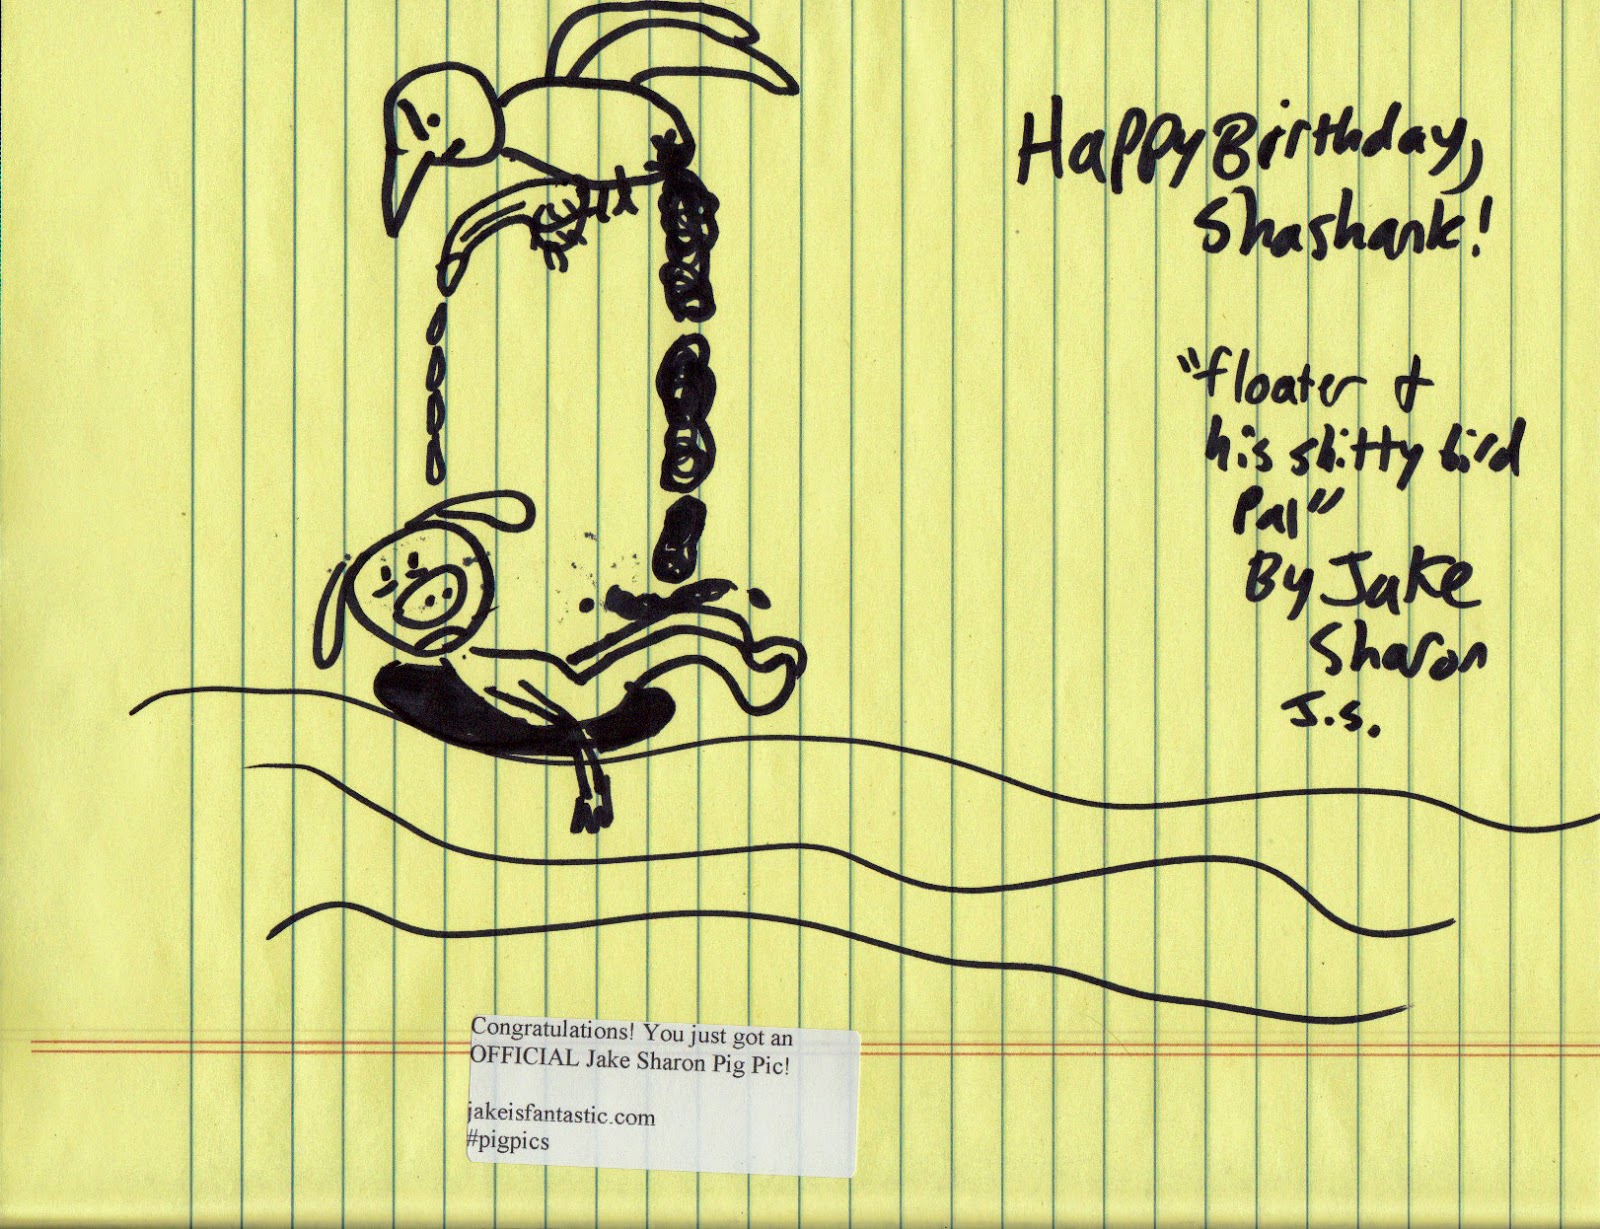 Happy Birthday,
Shashank!
"floater &
his shitty bird
Pal"
By Jake
Sharon
J.S.
Congratulations! You just got an
OFFICIAL Jake Sharon Pig Pic!
jakeisfantastic.com
#pigpics